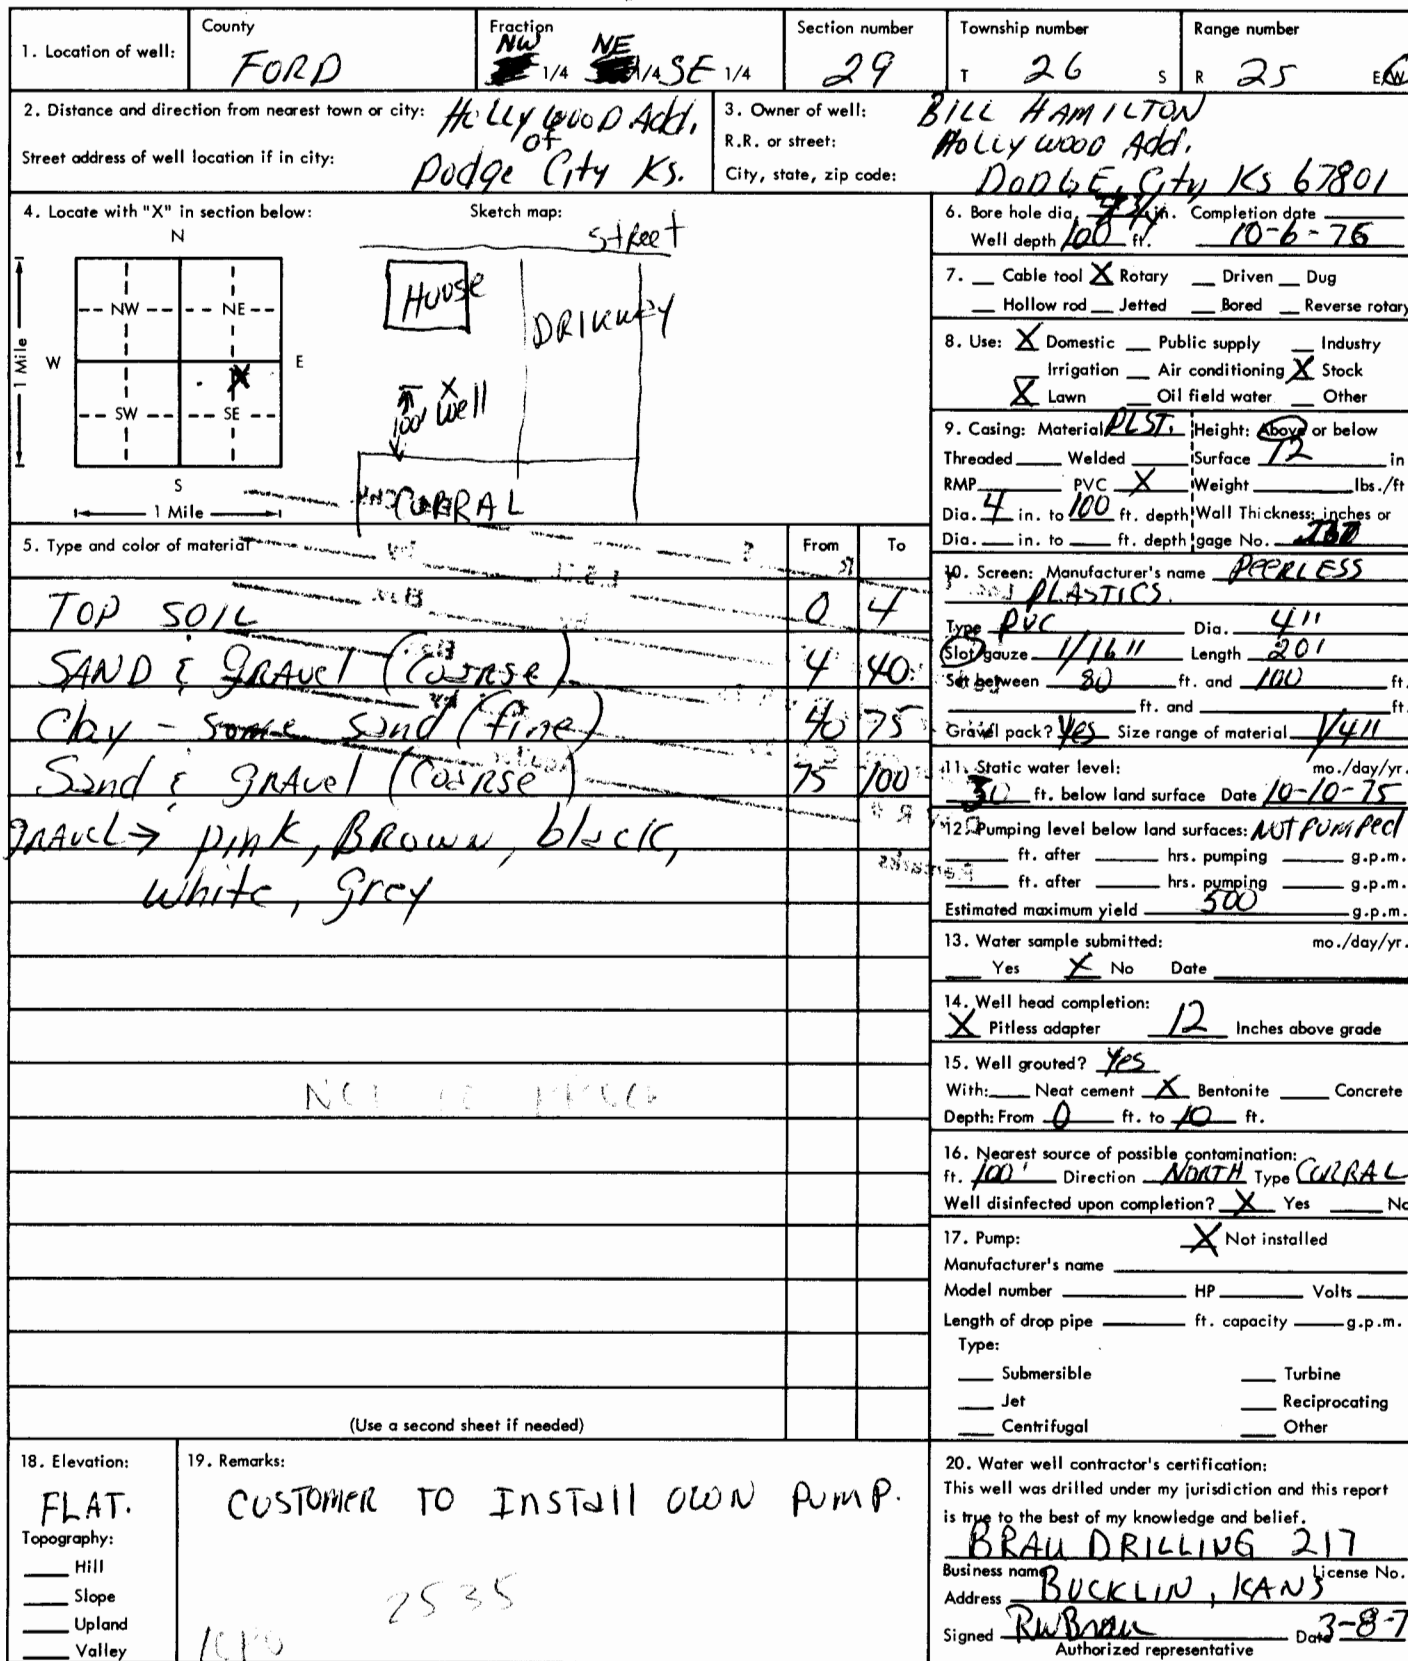 1. Location of well:
County
FORD
Fraction
NW NE
1/4 1/4 SE 1/4
Section number
29
Township number
T 26 S
Range number
R 25 E W
2. Distance and direction from nearest town or city: HOLLYWOOD Add.
of
Street address of well location if in city: Dodge City Ks.
3. Owner of well: BILL HAMILTON
R.R. or street: HOLLYWOOD Add.
City, state, zip code: DODGE City KS 67801
4. Locate with "X" in section below:
N
NW NE
W E
X
SW SE
S
1 Mile
1 Mile
Sketch map:
Street
House
DRIKWAY
X
100' Well
CORRAL
5. Type and color of material From To
TOP SOIL 0 4
SAND & GRAVEL (COARSE) 4 40
Clay - some sand (fine) 40 75
Sand & GRAVEL (COARSE) 75 100
GRAVEL → pink, BROWN, black,
white, grey
(Use a second sheet if needed)
6. Bore hole dia. in. Completion date
Well depth 100 ft. 10-6-76
7. Cable tool X Rotary Driven Dug
Hollow rod Jetted Bored Reverse rotary
8. Use: X Domestic Public supply Industry
Irrigation Air conditioning X Stock
X Lawn Oil field water Other
9. Casing: Material PLST. Height: Above or below
Threaded Welded Surface 12 in
RMP PVC X Weight lbs./ft
Dia. 4 in. to 100 ft. depth Wall Thickness: inches or
Dia. in. to ft. depth gage No.
10. Screen: Manufacturer's name PEERLESS
PLASTICS.
Type PVC Dia. 4"
Slot gauze 1/16" Length 20'
Set between 80 ft. and 100 ft.
ft. and ft.
Gravel pack? Yes Size range of material 1/4"
11. Static water level: mo./day/yr.
30 ft. below land surface Date 10-10-75
12. Pumping level below land surfaces: NOT PUMPED
ft. after hrs. pumping g.p.m.
ft. after hrs. pumping g.p.m.
Estimated maximum yield 500 g.p.m.
13. Water sample submitted: mo./day/yr.
Yes X No Date
14. Well head completion:
X Pitless adapter 12 Inches above grade
15. Well grouted? Yes
With: Neat cement X Bentonite Concrete
Depth: From 0 ft. to 10 ft.
16. Nearest source of possible contamination:
ft. 100' Direction NORTH Type CORRAL
Well disinfected upon completion? X Yes No
17. Pump: X Not installed
Manufacturer's name
Model number HP Volts
Length of drop pipe ft. capacity g.p.m.
Type:
Submersible Turbine
Jet Reciprocating
Centrifugal Other
18. Elevation:
FLAT.
Topography:
Hill
Slope
Upland
Valley
19. Remarks:
CUSTOMER TO INSTall OWN PUMP.
2535
20. Water well contractor's certification:
This well was drilled under my jurisdiction and this report
is true to the best of my knowledge and belief.
BRAU DRILLING 217
Business name License No.
Address BUCKLIN, KANS
Signed RW Brau Date 3-8-7
Authorized representative